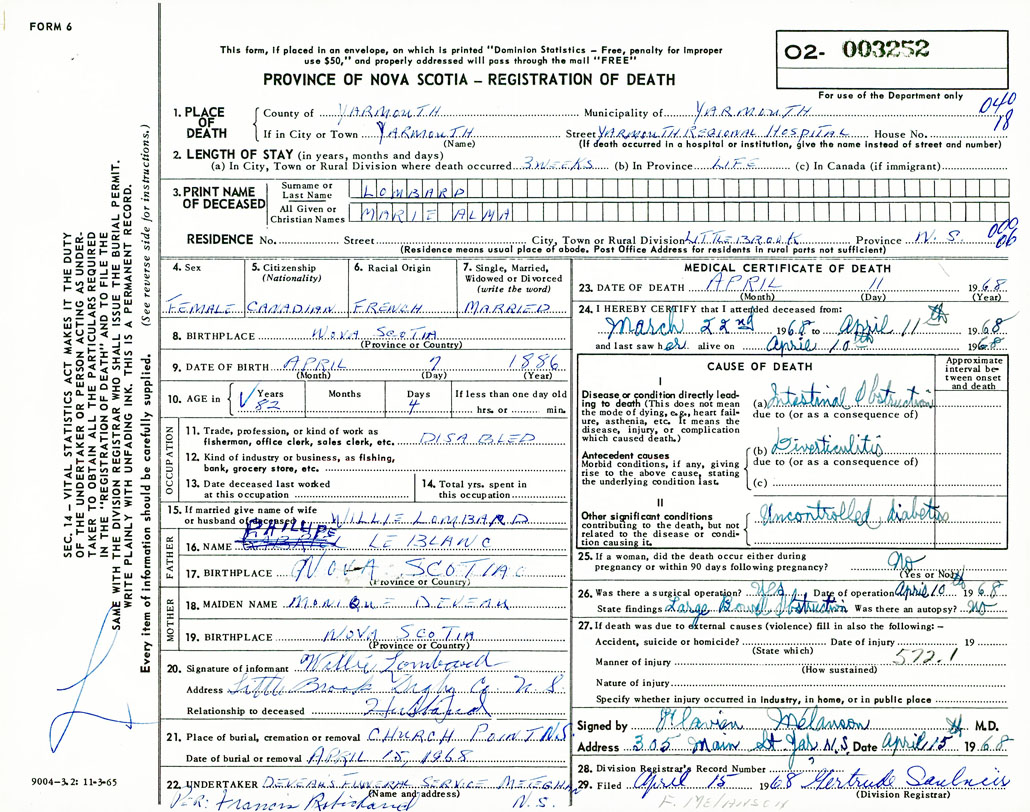 FORM 6
This form, if placed in an envelope, on which is printed "Dominion Statistics – Free, penalty for improper
use $50," and properly addressed will pass through the mail "FREE"
PROVINCE OF NOVA SCOTIA – REGISTRATION OF DEATH
02- 003252
For use of the Department only
040
18
1. PLACE OF DEATH
County of YARMOUTH Municipality of YARMOUTH
If in City or Town YARMOUTH Street YARMOUTH REGIONAL HOSPITAL House No.
(Name) (If death occurred in a hospital or institution, give the name instead of street and number)
2. LENGTH OF STAY (in years, months and days)
(a) In City, Town or Rural Division where death occurred 3 WEEKS (b) In Province LIFE (c) In Canada (if immigrant)
3. PRINT NAME OF DECEASED
Surname or Last Name LOMBARD
All Given or Christian Names MARIE ALMA
RESIDENCE No. Street City, Town or Rural Division LITTLE BROOK Province N.S.
(Residence means usual place of abode. Post Office Address for residents in rural parts not sufficient)
000
06
4. Sex FEMALE
5. Citizenship (Nationality) CANADIAN
6. Racial Origin FRENCH
7. Single, Married, Widowed or Divorced (write the word) MARRIED
8. BIRTHPLACE NOVA SCOTIA
(Province or Country)
9. DATE OF BIRTH APRIL 7 1886
(Month) (Day) (Year)
10. AGE in Years 82 Months Days 4 If less than one day old hrs. or min.
OCCUPATION
11. Trade, profession, or kind of work as
fisherman, office clerk, sales clerk, etc. DISABLED
12. Kind of industry or business, as fishing,
bank, grocery store, etc.
13. Date deceased last worked
at this occupation
14. Total yrs. spent in
this occupation
15. If married give name of wife
or husband of deceased WILLIE LOMBARD
FATHER
PHILIPE
16. NAME LE BLANC
17. BIRTHPLACE NOVA SCOTIA
(Province or Country)
MOTHER
18. MAIDEN NAME MONIQUE DEVEAU
19. BIRTHPLACE NOVA SCOTIA
(Province or Country)
20. Signature of informant Willie Lombard
Address Little Brook Digby Co N S
Relationship to deceased Husband
21. Place of burial, cremation or removal CHURCH POINT N.S.
Date of burial or removal APRIL 15, 1968
22. UNDERTAKER DEVEAU'S FUNERAL SERVICE METEGHAN
(Name and address) N.S.
PER: Francis Robichaud
MEDICAL CERTIFICATE OF DEATH
23. DATE OF DEATH APRIL 11 1968
(Month) (Day) (Year)
24. I HEREBY CERTIFY that I attended deceased from:
March 22nd 1968 to April 11th 1968
and last saw her alive on April 10th 1968
CAUSE OF DEATH
Approximate interval between onset and death
I
Disease or condition directly leading
to death (This does not mean
the mode of dying, e.g., heart failure,
asthenia, etc. It means the
disease, injury, or complication
which caused death.)
(a) Intestinal Obstruction
due to (or as a consequence of)
Antecedent causes
Morbid conditions, if any, giving
rise to the above cause, stating
the underlying condition last.
(b) Diverticulitis
due to (or as a consequence of)
(c)
II
Other significant conditions
contributing to the death, but not
related to the disease or condition
causing it.
Uncontrolled diabetes
25. If a woman, did the death occur either during
pregnancy or within 90 days following pregnancy? No
(Yes or No)
26. Was there a surgical operation? Yes Date of operation April 10 1968
State findings Large Bowel Obstruction Was there an autopsy? No
27. If death was due to external causes (violence) fill in also the following: –
Accident, suicide or homicide? Date of injury 19
(State which)
Manner of injury 572.1
(How sustained)
Nature of injury
Specify whether injury occurred in industry, in home, or in public place
Signed by Flavien Melanson M.D.
Address 305 Main St Yar. N.S. Date April 15 1968
28. Division Registrar's Record Number
29. Filed April 15 1968 Gertrude Saulnier
(Division Registrar)
F. MELANSON
SEC. 14 – VITAL STATISTICS ACT MAKES IT THE DUTY
OF THE UNDERTAKER OR PERSON ACTING AS UNDERTAKER
TO OBTAIN ALL THE PARTICULARS REQUIRED
IN THE "REGISTRATION OF DEATH" AND TO FILE THE
SAME WITH THE DIVISION REGISTRAR WHO SHALL ISSUE THE BURIAL PERMIT.
WRITE PLAINLY WITH UNFADING INK. THIS IS A PERMANENT RECORD.
Every item of information should be carefully supplied. (See reverse side for instructions.)
9004-3.2: 11-3-65